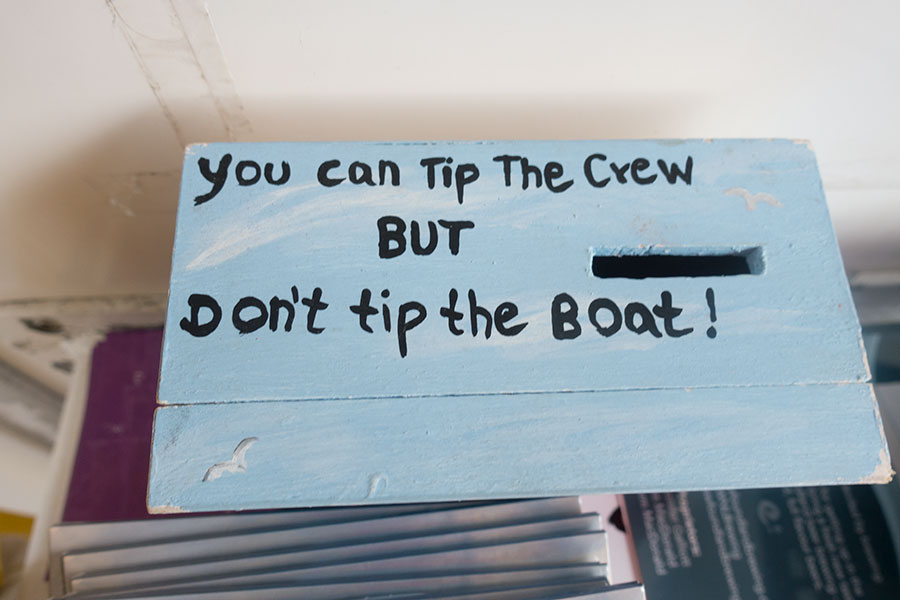 You can Tip The Crew
BUT
Don't tip the Boat!